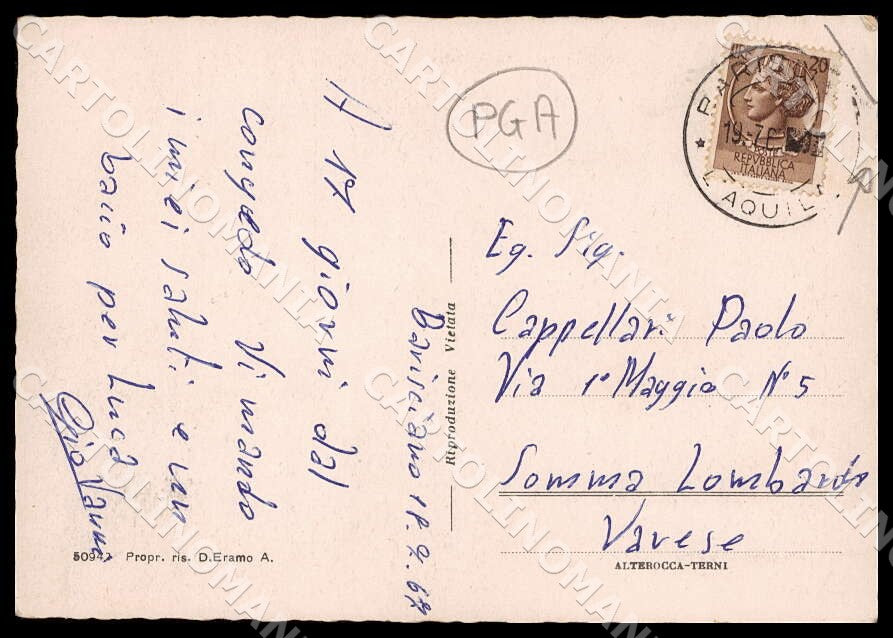 A 17 giorni dal
congedo Vi mando
i miei saluti e un
bacio per Luca
Giovanni
Barisciano
Riproduzione Vietata
PGA
20
REPVBBLICA
ITALIANA
L'AQUIL
Eg. Sig.
Cappellari Paolo
Via 1° Maggio N° 5
Somma Lombardo
Varese
50947 Propr. ris. D.Eramo A.
ALTEROCCA-TERNI
CARTOLINOMANIA